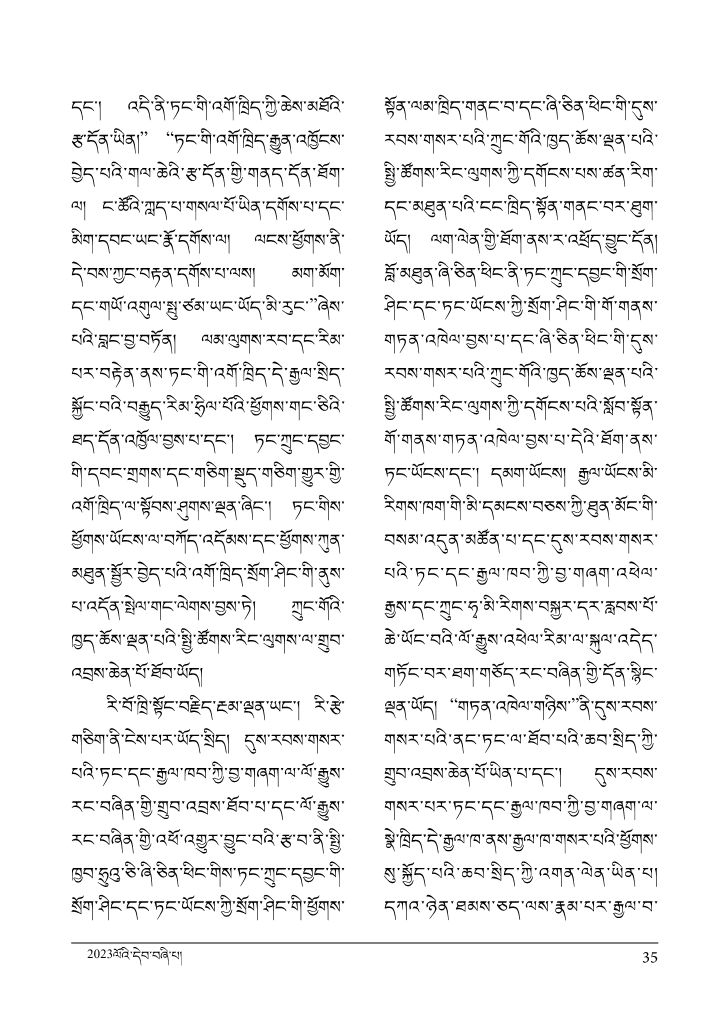 དང་། འདི་ནི་ཏང་གི་འགོ་ཁྲིད་ཀྱི་ཆེས་མཐོའི་
རྩ་དོན་ཡིན།” “ཏང་གི་འགོ་ཁྲིད་རྒྱུན་འཁྱོངས་
བྱེད་པའི་གལ་ཆེའི་རྩ་དོན་གྱི་གནད་དོན་ཐོག་
ལ། ང་ཚོའི་ཀླད་པ་གསལ་པོ་ཡིན་དགོས་པ་དང་
མིག་དབང་ཡང་རྣོ་དགོས་ལ། ལངས་ཕྱོགས་ནི་
དེ་བས་ཀྱང་བརྟན་དགོས་པ་ལས། མག་མོག་
དང་གཡོ་འགུལ་སྤུ་ཙམ་ཡང་ཡོད་མི་རུང་”ཞེས་
པའི་བླང་བྱ་བཏོན། ལམ་ལུགས་རབ་དང་རིམ་
པར་བརྟེན་ནས་ཏང་གི་འགོ་ཁྲིད་དེ་རྒྱལ་སྲིད་
སྐྱོང་བའི་བརྒྱུད་རིམ་ཧྲིལ་པོའི་ཕྱོགས་གང་ཅིའི་
ཐད་དོན་འཁྱོལ་བྱས་པ་དང་། ཏང་ཀྲུང་དབྱང་
གི་དབང་གྲགས་དང་གཅིག་སྡུད་གཅིག་གྱུར་གྱི་
འགོ་ཁྲིད་ལ་སྟོབས་ཤུགས་ལྡན་ཞིང་། ཏང་གིས་
ཕྱོགས་ཡོངས་ལ་བཀོད་འདོམས་དང་ཕྱོགས་ཀུན་
མཐུན་སྦྱོར་བྱེད་པའི་འགོ་ཁྲིད་སྲོག་ཤིང་གི་ནུས་
པ་འདོན་སྤེལ་གང་ལེགས་བྱས་ཏེ། ཀྲུང་གོའི་
ཁྱད་ཆོས་ལྡན་པའི་སྤྱི་ཚོགས་རིང་ལུགས་ལ་གྲུབ་
འབྲས་ཆེན་པོ་ཐོབ་ཡོད།
རི་བོ་ཁྲི་སྟོང་བརྗིད་ཉམས་ལྡན་ཡང་། རི་རྩེ་
གཅིག་ནི་ངེས་པར་ཡོད་སྲིད། དུས་རབས་གསར་
པའི་ཏང་དང་རྒྱལ་ཁབ་ཀྱི་བྱ་གཞག་ལ་ལོ་རྒྱུས་
རང་བཞིན་གྱི་གྲུབ་འབྲས་ཐོབ་པ་དང་ལོ་རྒྱུས་
རང་བཞིན་གྱི་འཕོ་འགྱུར་བྱུང་བའི་རྩ་བ་ནི་སྤྱི་
ཁྱབ་ཧྲུའུ་ཅི་ཞི་ཅིན་ཕིང་གིས་ཏང་ཀྲུང་དབྱང་གི་
སྲོག་ཤིང་དང་ཏང་ཡོངས་ཀྱི་སྲོག་ཤིང་གི་ཕྱོགས་
སྟོན་ལམ་ཁྲིད་གནང་བ་དང་ཞི་ཅིན་ཕིང་གི་དུས་
རབས་གསར་པའི་ཀྲུང་གོའི་ཁྱད་ཆོས་ལྡན་པའི་
སྤྱི་ཚོགས་རིང་ལུགས་ཀྱི་དགོངས་པས་ཚན་རིག་
དང་མཐུན་པའི་ངང་ཁྲིད་སྟོན་གནང་བར་ཐུག་
ཡོད། ལག་ལེན་གྱི་ཐོག་ནས་ར་འཕྲོད་བྱུང་དོན།
བློ་མཐུན་ཞི་ཅིན་ཕིང་ནི་ཏང་ཀྲུང་དབྱང་གི་སྲོག་
ཤིང་དང་ཏང་ཡོངས་ཀྱི་སྲོག་ཤིང་གི་གོ་གནས་
གཏན་འཁེལ་བྱས་པ་དང་ཞི་ཅིན་ཕིང་གི་དུས་
རབས་གསར་པའི་ཀྲུང་གོའི་ཁྱད་ཆོས་ལྡན་པའི་
སྤྱི་ཚོགས་རིང་ལུགས་ཀྱི་དགོངས་པའི་སློབ་སྟོན་
གོ་གནས་གཏན་འཁེལ་བྱས་པ་དེའི་ཐོག་ནས་
ཏང་ཡོངས་དང་། དམག་ཡོངས། རྒྱལ་ཡོངས་མི་
རིགས་ཁག་གི་མི་དམངས་བཅས་ཀྱི་ཐུན་མོང་གི་
བསམ་འདུན་མཚོན་པ་དང་དུས་རབས་གསར་
པའི་ཏང་དང་རྒྱལ་ཁབ་ཀྱི་བྱ་གཞག་འཕེལ་
རྒྱས་དང་ཀྲུང་ཧྭ་མི་རིགས་བསྐྱར་དར་རླབས་པོ་
ཆེ་ཡོང་བའི་ལོ་རྒྱུས་འཕེལ་རིམ་ལ་སྐུལ་འདེད་
གཏོང་བར་ཐག་གཅོད་རང་བཞིན་གྱི་དོན་སྙིང་
ལྡན་ཡོད། “གཏན་འཁེལ་གཉིས་”ནི་དུས་རབས་
གསར་པའི་ནང་ཏང་ལ་ཐོབ་པའི་ཆབ་སྲིད་ཀྱི་
གྲུབ་འབྲས་ཆེན་པོ་ཡིན་པ་དང་། དུས་རབས་
གསར་པར་ཏང་དང་རྒྱལ་ཁབ་ཀྱི་བྱ་གཞག་ལ་
སྣེ་ཁྲིད་དེ་རྒྱལ་ཁ་ནས་རྒྱལ་ཁ་གསར་པའི་ཕྱོགས་
སུ་སྐྱོད་པའི་ཆབ་སྲིད་ཀྱི་འགན་ལེན་ཡིན་པ།
དཀའ་ཉེན་ཐམས་ཅད་ལས་རྣམ་པར་རྒྱལ་བ་
2023ལོའི་དེབ་བཞི་པ།
35